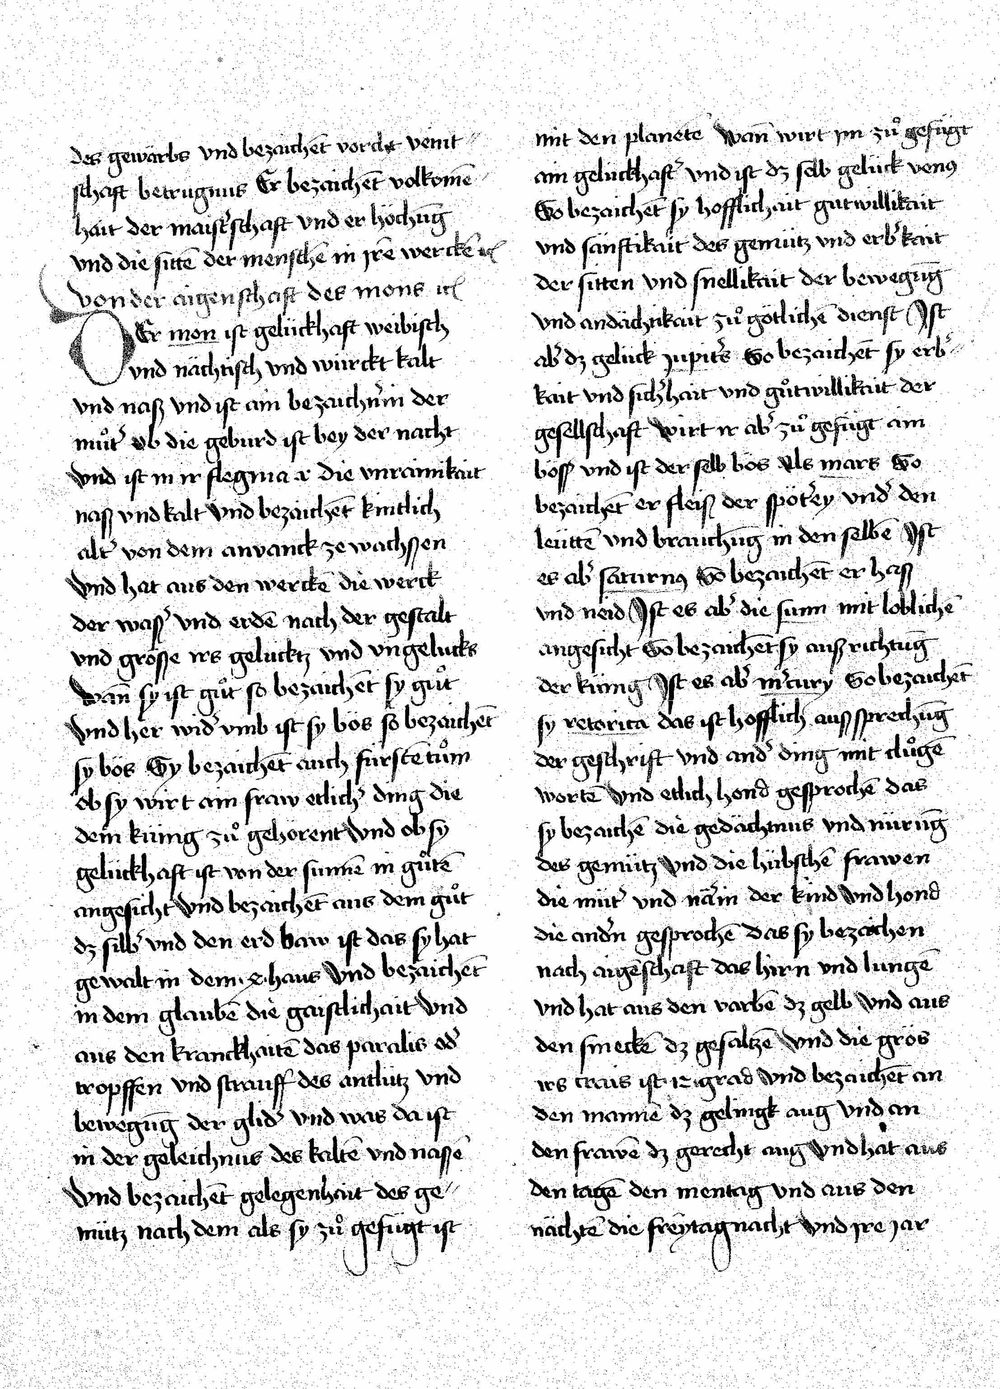 des gewärbs vnd bezaichēt vorcht veint〃
schaft betrugnus Er bezaichēt volkomē〃
hait der maist͛schaft vnd er höchūg
vnd die sittē der menschē in jrē werckē ⁊c
von der aigenschaft des mons ⁊c
DEr mon ist gelückhaft weibisch
vnd nächtisch vnd würckt kalt
vnd naß vnd ist ain bezaichn͛in der
muͦt͛ ob die geburd ist bey der nacht
vnd ist in ir flegma ⁊ die vnrainikait
naß vnd kalt vnd bezaichēt kintlich
alt͛ von dem anvanck ze wachssen
vnd hat aus den werckē die werck
der wass͛ vnd erdē nach der gestalt
vnd grösse irs gelücktz vnd vngelucks
wan̄ sy ist guͦt so bezaichēt sy guͦt
vnd her wid͛ vmb ist sy bös so bezaichēt
sy bös Sy bezaichēt auch fürstētuͦm
ob sy wirt ain fraw etlich͛ ding die
dem küing zuͦ gehörent vnd ob sy
gelückhaft ist von der sunnē in guͦtē
angesicht vnd bezaichēt aus dem guͦt
dz silb͛ vnd den erd baw ist das sy hat
gewalt in dem ·2· haus vnd bezaichēt
in dem glaubē die gaistlichait vnd
aus den kranckhaitē das paralis od͛
tropffen vnd strauff des antlütz vnd
bewegūg der glid͛ vnd was da ist
in der geleichnus des kaltē vnd nassē
vnd bezaichēt gelegenhait des ge〃
mütz nach dem als sy zuͦ gefügt ist
mit den planetē wan̄ wirt jm zuͦ gefügt
ain gelückhaft͛ vnd ist dz selb gelück venꝰ
So bezaichēt sy hofflichait gutwillikait
vnd sänftikait des gemütz vnd erb͛kait
der sitten vnd snellikait der bewegūg
vnd andächtikait zuͦ götlichē dienst Jst
ab͛ dz gelück jupit͛s So bezaichēt sy erb͛〃
kait vnd sich͛hait vnd guͦtwillikait der
gesellschaft wirt ir ab͛ zuͦ gefügt ain
böss vnd ist der selb bös als mars So
bezaichēt er fleiß der spöt͛ey vnd͛ den
leüttē vnd brauchūg in den selbē Jst
es ab͛ saturnꝰ So bezaichēt er hass
vnd neid Jst es ab͛ die sunn mit loblichē
angesicht So bezaichēt sy auß richtūg
der küing Jst es ab͛ m͛cury So bezaichēt
sy retorica das ist hofflich auß sprechūg
der geschrift vnd and͛ ding mit cluͦgē
wortē vnd etlich hond gesprochē das
sy bezaichē die gedächtnus vnd nürūg
des gemütz vnd die hübschē frawen
die müt͛ vnd när͛in der kind vnd hond
die and͛n gesprochē das sy bezaichen
nach aigēschaft das hirn vnd lungē
vnd hat aus den varbē dz gelb vnd aus
den smeckē dz gesaltzē vnd die grös
irs crais ist ·12· grad vnd bezaichēt an
den mannē dz gelingk aug vnd an
den frawē dz gerecht aug vnd hat aus
den tagē den mentag vnd aus den
nächtē die freytag nacht vnd jre jar